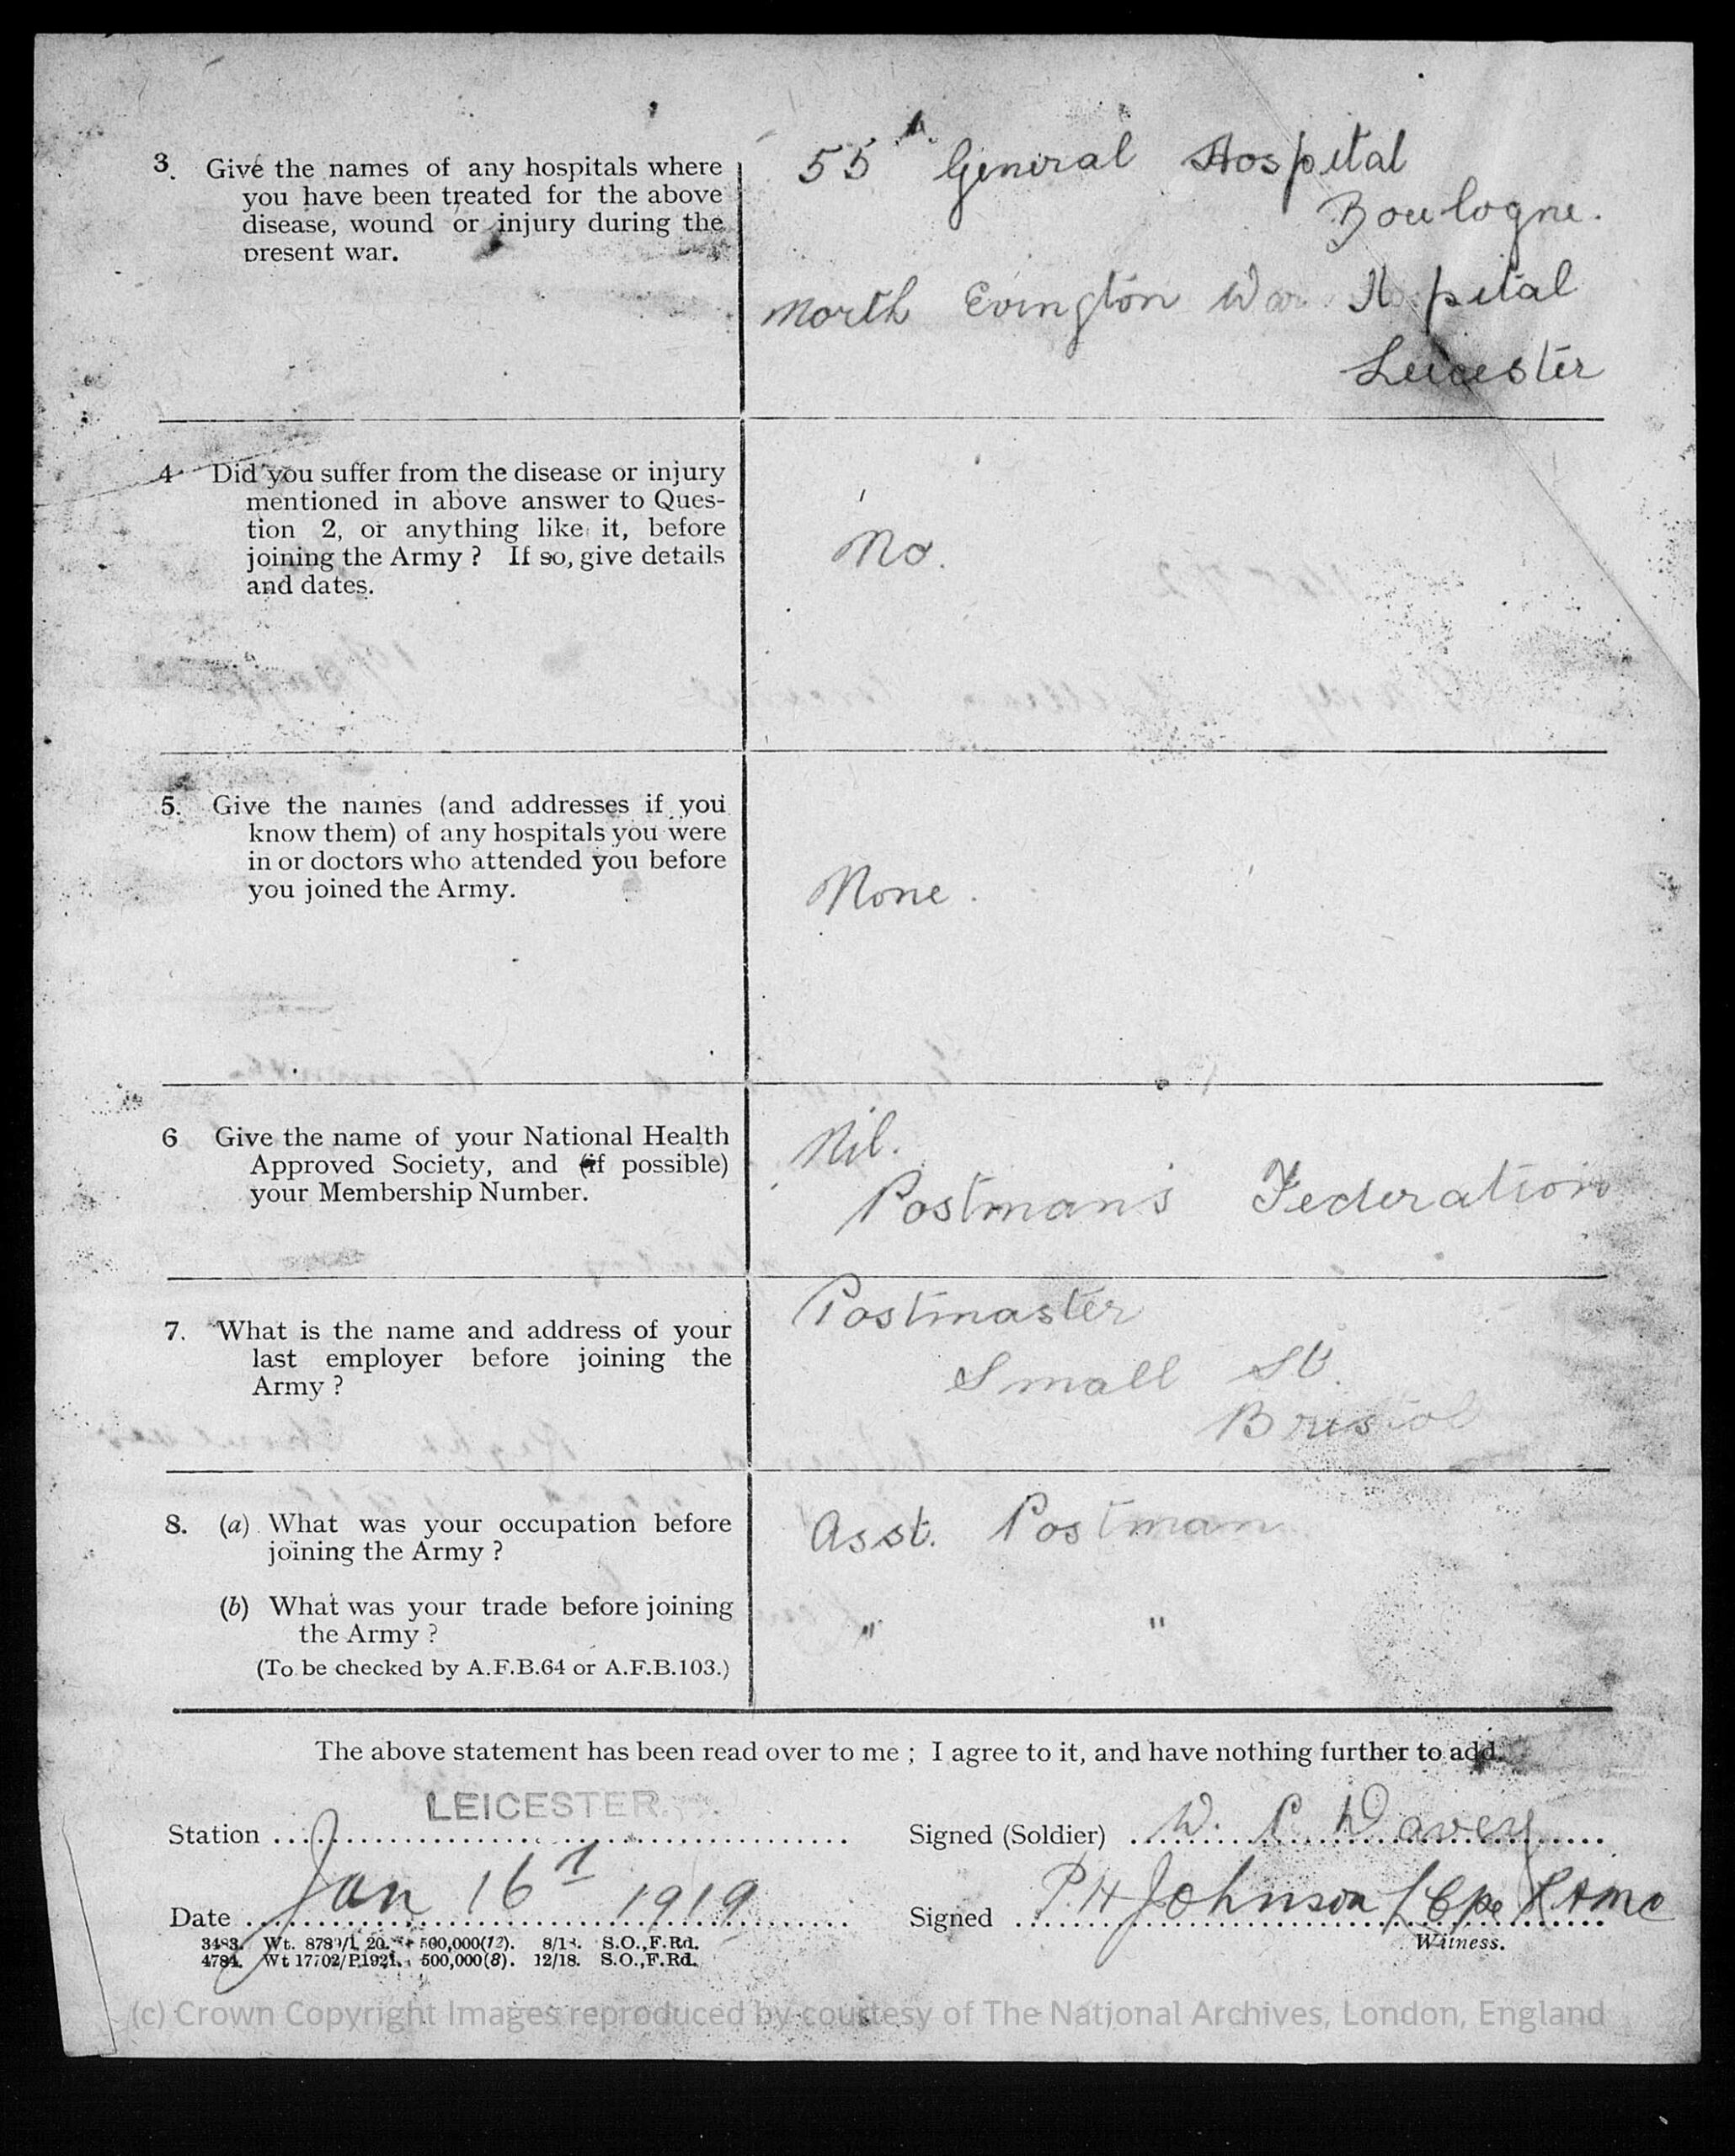 3. Give the names of any hospitals where
you have been treated for the above
disease, wound or injury during the
present war.
55th General Hospital
Boulogne.
North Evington War Hospital
Leicester
4 Did you suffer from the disease or injury
mentioned in above answer to Ques-
tion 2, or anything like it, before
joining the Army ? If so, give details
and dates.
No.
5. Give the names (and addresses if you
know them) of any hospitals you were
in or doctors who attended you before
you joined the Army.
None.
6 Give the name of your National Health
Approved Society, and (if possible)
your Membership Number.
Nil.
Postman's Federation
7. What is the name and address of your
last employer before joining the
Army ?
Postmaster
Small St.
Bristol
8. (a) What was your occupation before
joining the Army ?
Asst. Postman
(b) What was your trade before joining
the Army ?
" "
(To be checked by A.F.B.64 or A.F.B.103.)
The above statement has been read over to me ; I agree to it, and have nothing further to add.
LEICESTER.
Station
Signed (Soldier) W. P. Davey
Date Jan 16th 1919
Signed P.H Johnson L/Cpl RAMC
Witness.
3483. Wt. 500,000(12). 8/18. S.O.,F.Rd.
4784. Wt 17702/P1921. 500,000(8). 12/18. S.O.,F.Rd.
(c) Crown Copyright Images reproduced by courtesy of The National Archives, London, England